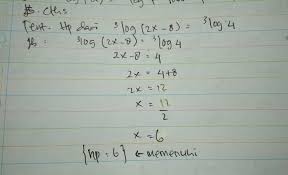 Cths.
Tent. Hp dari ³log (2x-8) = ³log 4
jb. ³log (2x-8) = ³log 4
2x-8 = 4
2x = 4+8
2x = 12
x = 12/2
x = 6
{Hp = 6} ← memenuhi